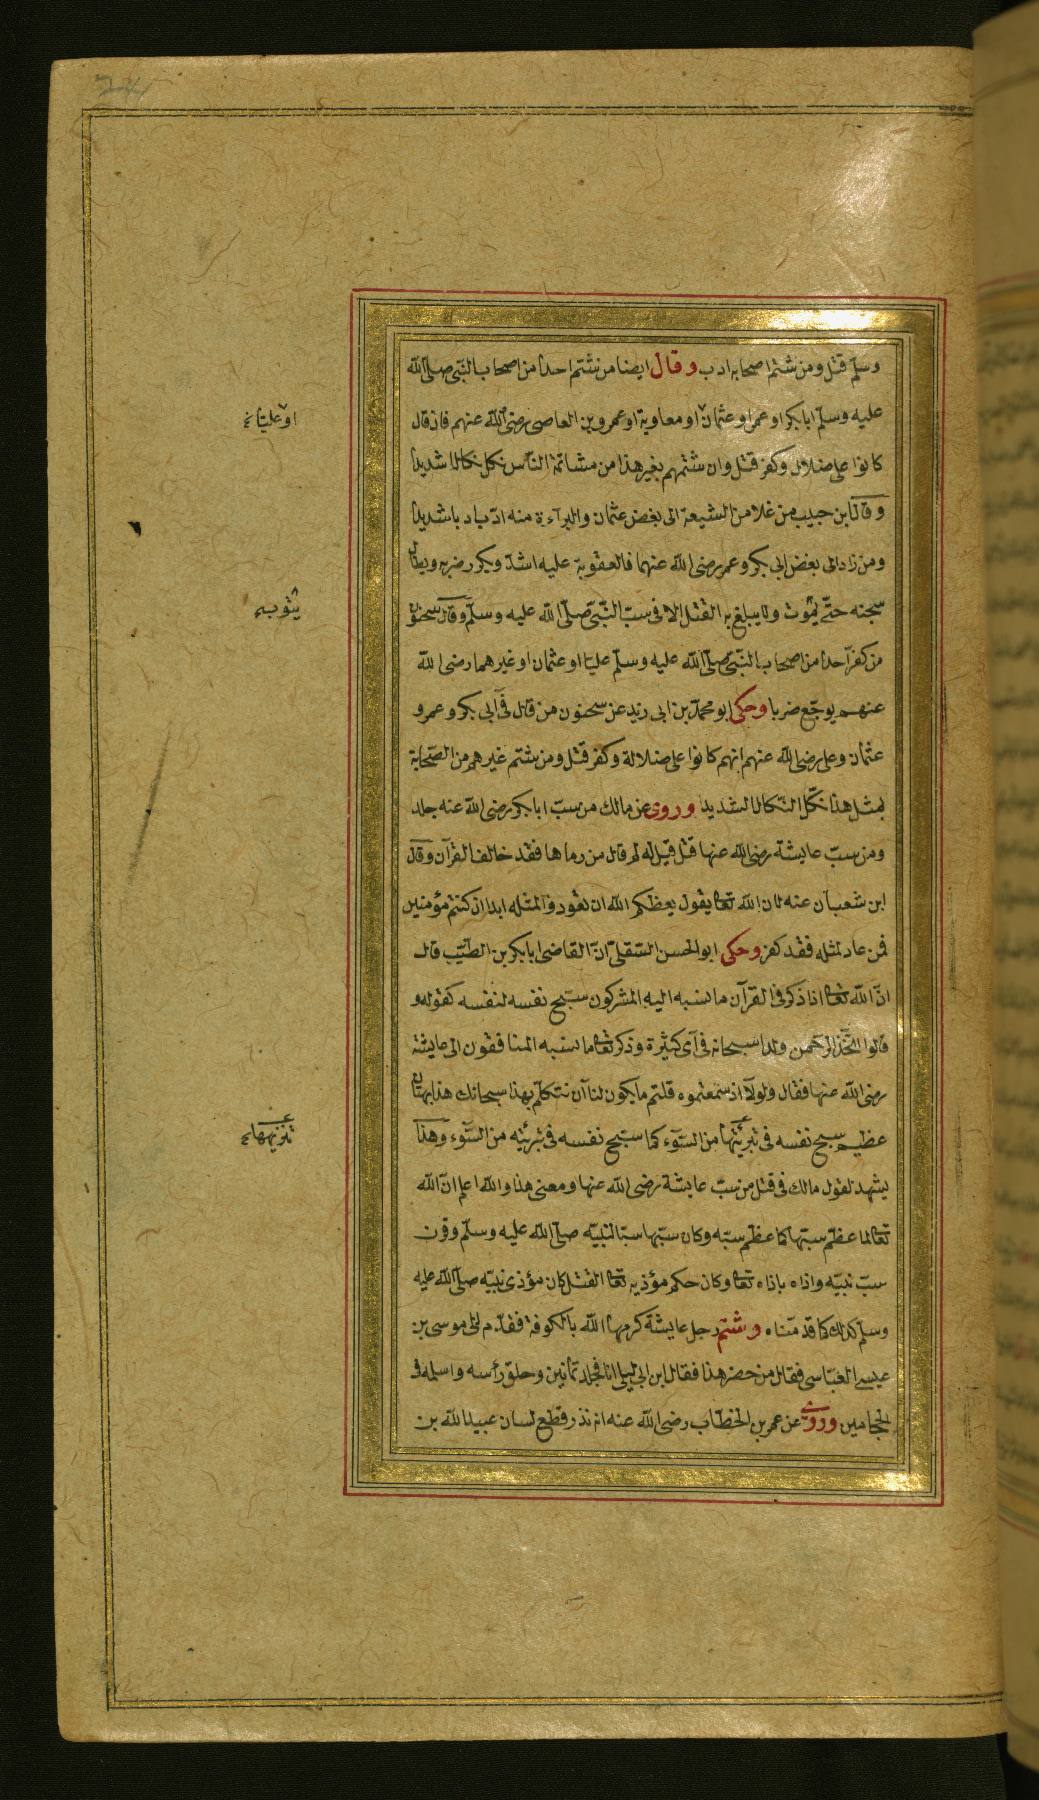 وسلّم قتل ومن شتم اصحابه ادب وقال ايضا من شتم احدا من اصحاب النّبّى صلّى اللّه
عليه وسلّم ابابكر او عمر او عثمان او معاوية او عمرو بن العاصى رضى اللّه عنهم فان قال
او عليا
كانوا على ضلال وكفر قتل وان شتمهم بغير هذا من مشاتمة النّاس نكل نكالا شديدا
وقال ابن حبيب من غلا من الشيعة الى بغض عثمان والبراءة منه ادّب ادبا شديدا
ومن زاد الى بغض ابى بكر وعمر رضى اللّه عنهما فالعقوبة عليه اشدّ ويكرر ضربه ويطال
سجنه حتّى يموت ولا يبلغ به القتل الا فى سبّ النّبّى صلّى اللّه عليه وسلّم وقال سحنون
من كفر احدا من اصحاب النّبّى صلّى اللّه عليه وسلّم عليا او عثمان او غيرهما رضى اللّه
عنهم يوجّع ضربا وحكى ابو محمّد بن ابى زيد عن سحنون من قال فى ابى بكر وعمر و
عثمان وعلى رضى اللّه عنهم انهم كانوا على ضلالة وكفر قتل ومن شتم غيرهم من الصّحابة
بمثل هذا نكّل النّكال الشديد وروى عن مالك من سبّ ابابكر رضى اللّه عنه جلد
ومن سبّ عايشة رضى اللّه عنها قتل قيل له لم قال من رماها فقد خالف القرآن وقال
ابن شعبان عنه لان اللّه تعالى يقول يعظكم اللّه ان تعودوا لمثله ابدا ان كنتم مؤمنين
فمن عاد لمثله فقد كفر وحكى ابو الحسن الصّقلىّ انّ القاضى ابابكر بن الطيّب قال
انّ اللّه تعالى اذا ذكر فى القرآن ما نسبه اليه المشركون سبّح نفسه لنفسه كقوله و
قالوا اتّخذ الرّحمن ولدا سبحانه فى آى كثيرة وذكر تعالى ما نسبه المنافقون الى عايشة
رضى اللّه عنها فقال ولولا اذ سمعتموه قلتم ما يكون لنا ان نتكلّم بهذا سبحانك هذا بهتان
عظيم سبح نفسه فى تبرئتها من السّوء كما سبّح نفسه فى تبرئته من السّوء وهذا
تنزيهها
يشهد لقول مالك فى قتل من سبّ عايشة رضى اللّه عنها ومعنى هذا واللّه اعلم انّ اللّه
تعالى لما عظّم سبّها كما عظّم سبّه وكان سبّها سبّا لنبيّه صلّى اللّه عليه وسلّم وقرن
سبّ نبيّه واذاه باذاه تعالى وكان حكم مؤذيه تعالى القتل كان مؤذى نبيّه صلّى اللّه عليه
وسلّم كذلك كما قدمّناه وشتم رجل عايشة كرمها اللّه بالكوفة فقدّم الى موسى بن
عيسى العبّاسى فقال من حضر هذا فقال ابن ابى ليلى انا فجلد ثمانين وحلق رأسه واسلمه فى
الحجامين وروى عن عمر بن الخطّاب رضى اللّه عنه انه نذر قطع لسان عبيد اللّه بن